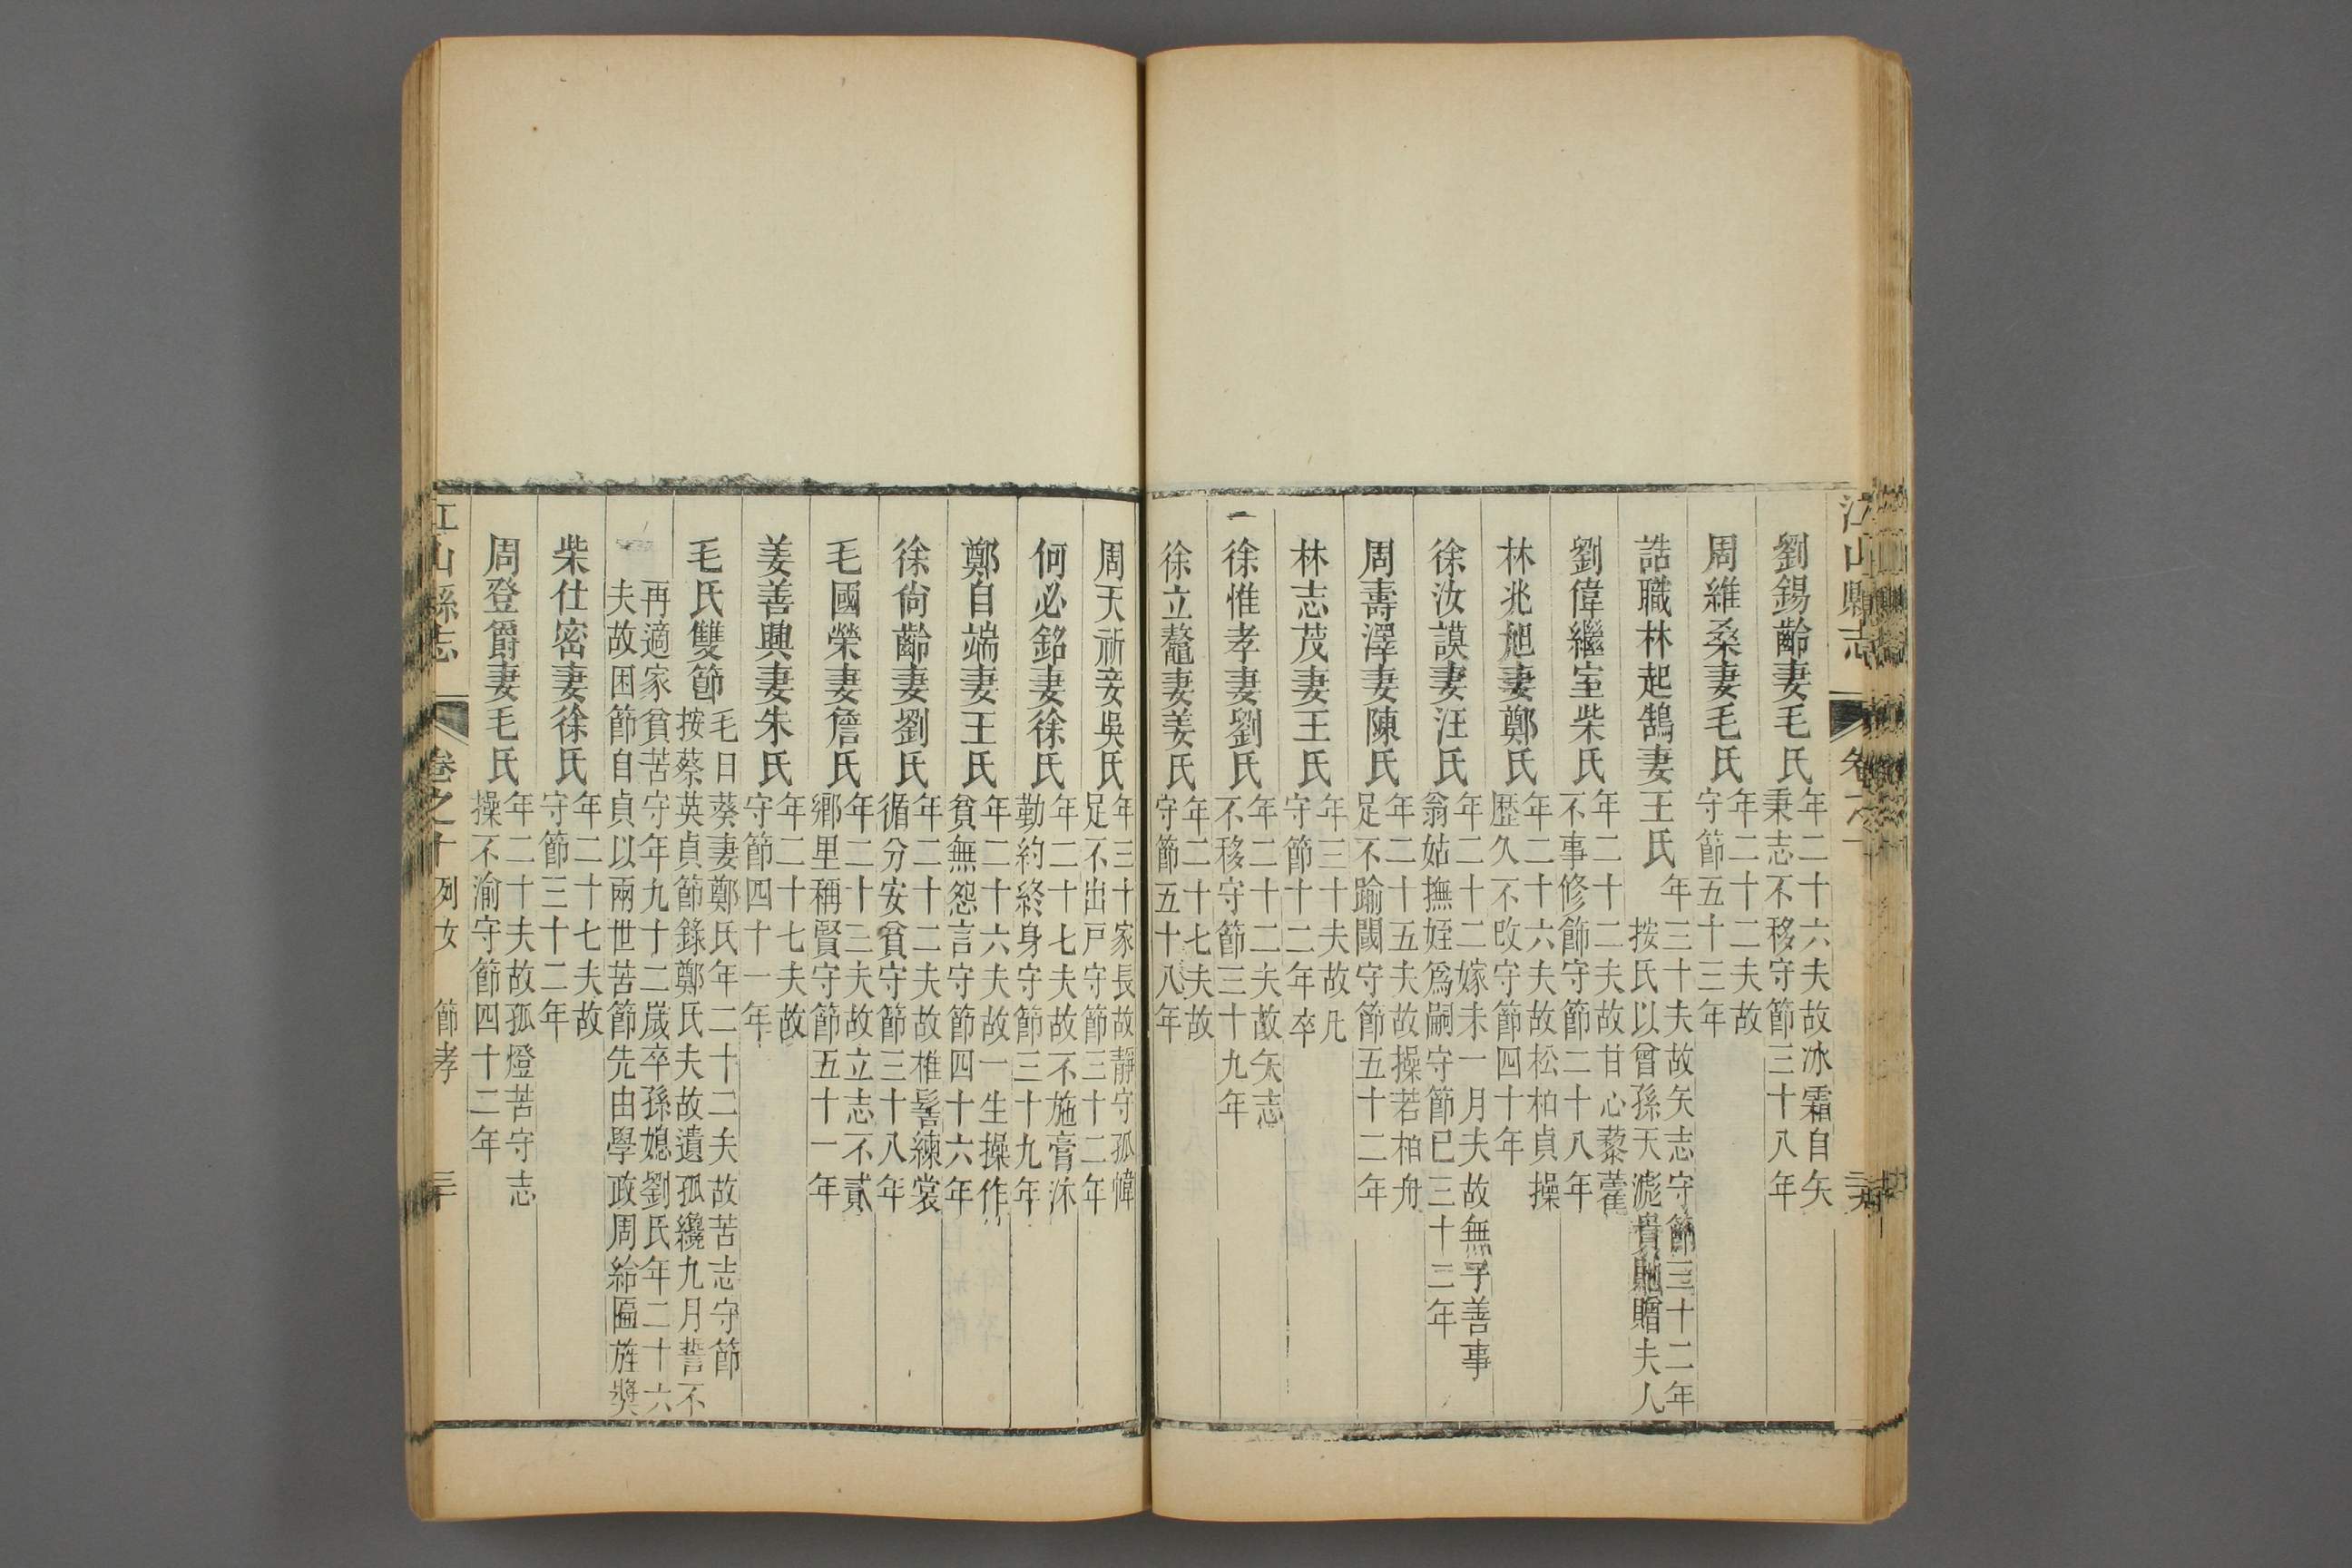 江山縣志
劉錫齡妻毛氏年二十六夫故冰霜自矢
秉志不移守節三十八年
周維桑妻毛氏年二十二夫故
守節五十三年
誥職林起鵠妻王氏年三十夫故矢志守節三十二年
按氏以曾孫天滮貴貤贈夫人
劉偉繼室柴氏年二十二夫故甘心藜藿
不事修飾守節二十八年
林兆旭妻鄭氏年二十六夫故松柏貞操
歷久不改守節四十年
徐汝謨妻汪氏年二十二嫁未一月夫故無子善事
翁姑撫姪爲嗣守節已三十三年
周壽澤妻陳氏年二十五夫故操若柏舟
足不踰閾守節五十二年
林志茂妻王氏年三十夫故凡
守節十二年卒
徐惟孝妻劉氏年二十二夫故矢志
不移守節三十九年
徐立鼇妻姜氏年二十七夫故
守節五十八年
周天祈妾吳氏年三十家長故靜守孤幃
足不出戸守節三十二年
何必銘妻徐氏年二十七夫故不施膏沐
勤約終身守節三十九年
鄭自端妻王氏年二十六夫故一生操作
貧無怨言守節四十六年
徐尙齡妻劉氏年二十二夫故椎髻練裳
循分安貧守節三十八年
毛國榮妻詹氏年二十三夫故立志不貳
鄉里稱賢守節五十一年
姜善興妻朱氏年二十七夫故
守節四十一年
毛氏雙節毛日葵妻鄭氏年二十二夫故苦志守節
按蔡英貞節錄鄭氏夫故遺孤纔九月誓不
再適家貧苦守年九十二歲卒孫媳劉氏年二十六
夫故困節自貞以兩世苦節先由學政周給匾旌獎
柴仕密妻徐氏年二十七夫故
守節三十二年
周登爵妻毛氏年二十夫故孤燈苦守志
操不渝守節四十二年
江山縣志 卷之十 列女 節孝 三十